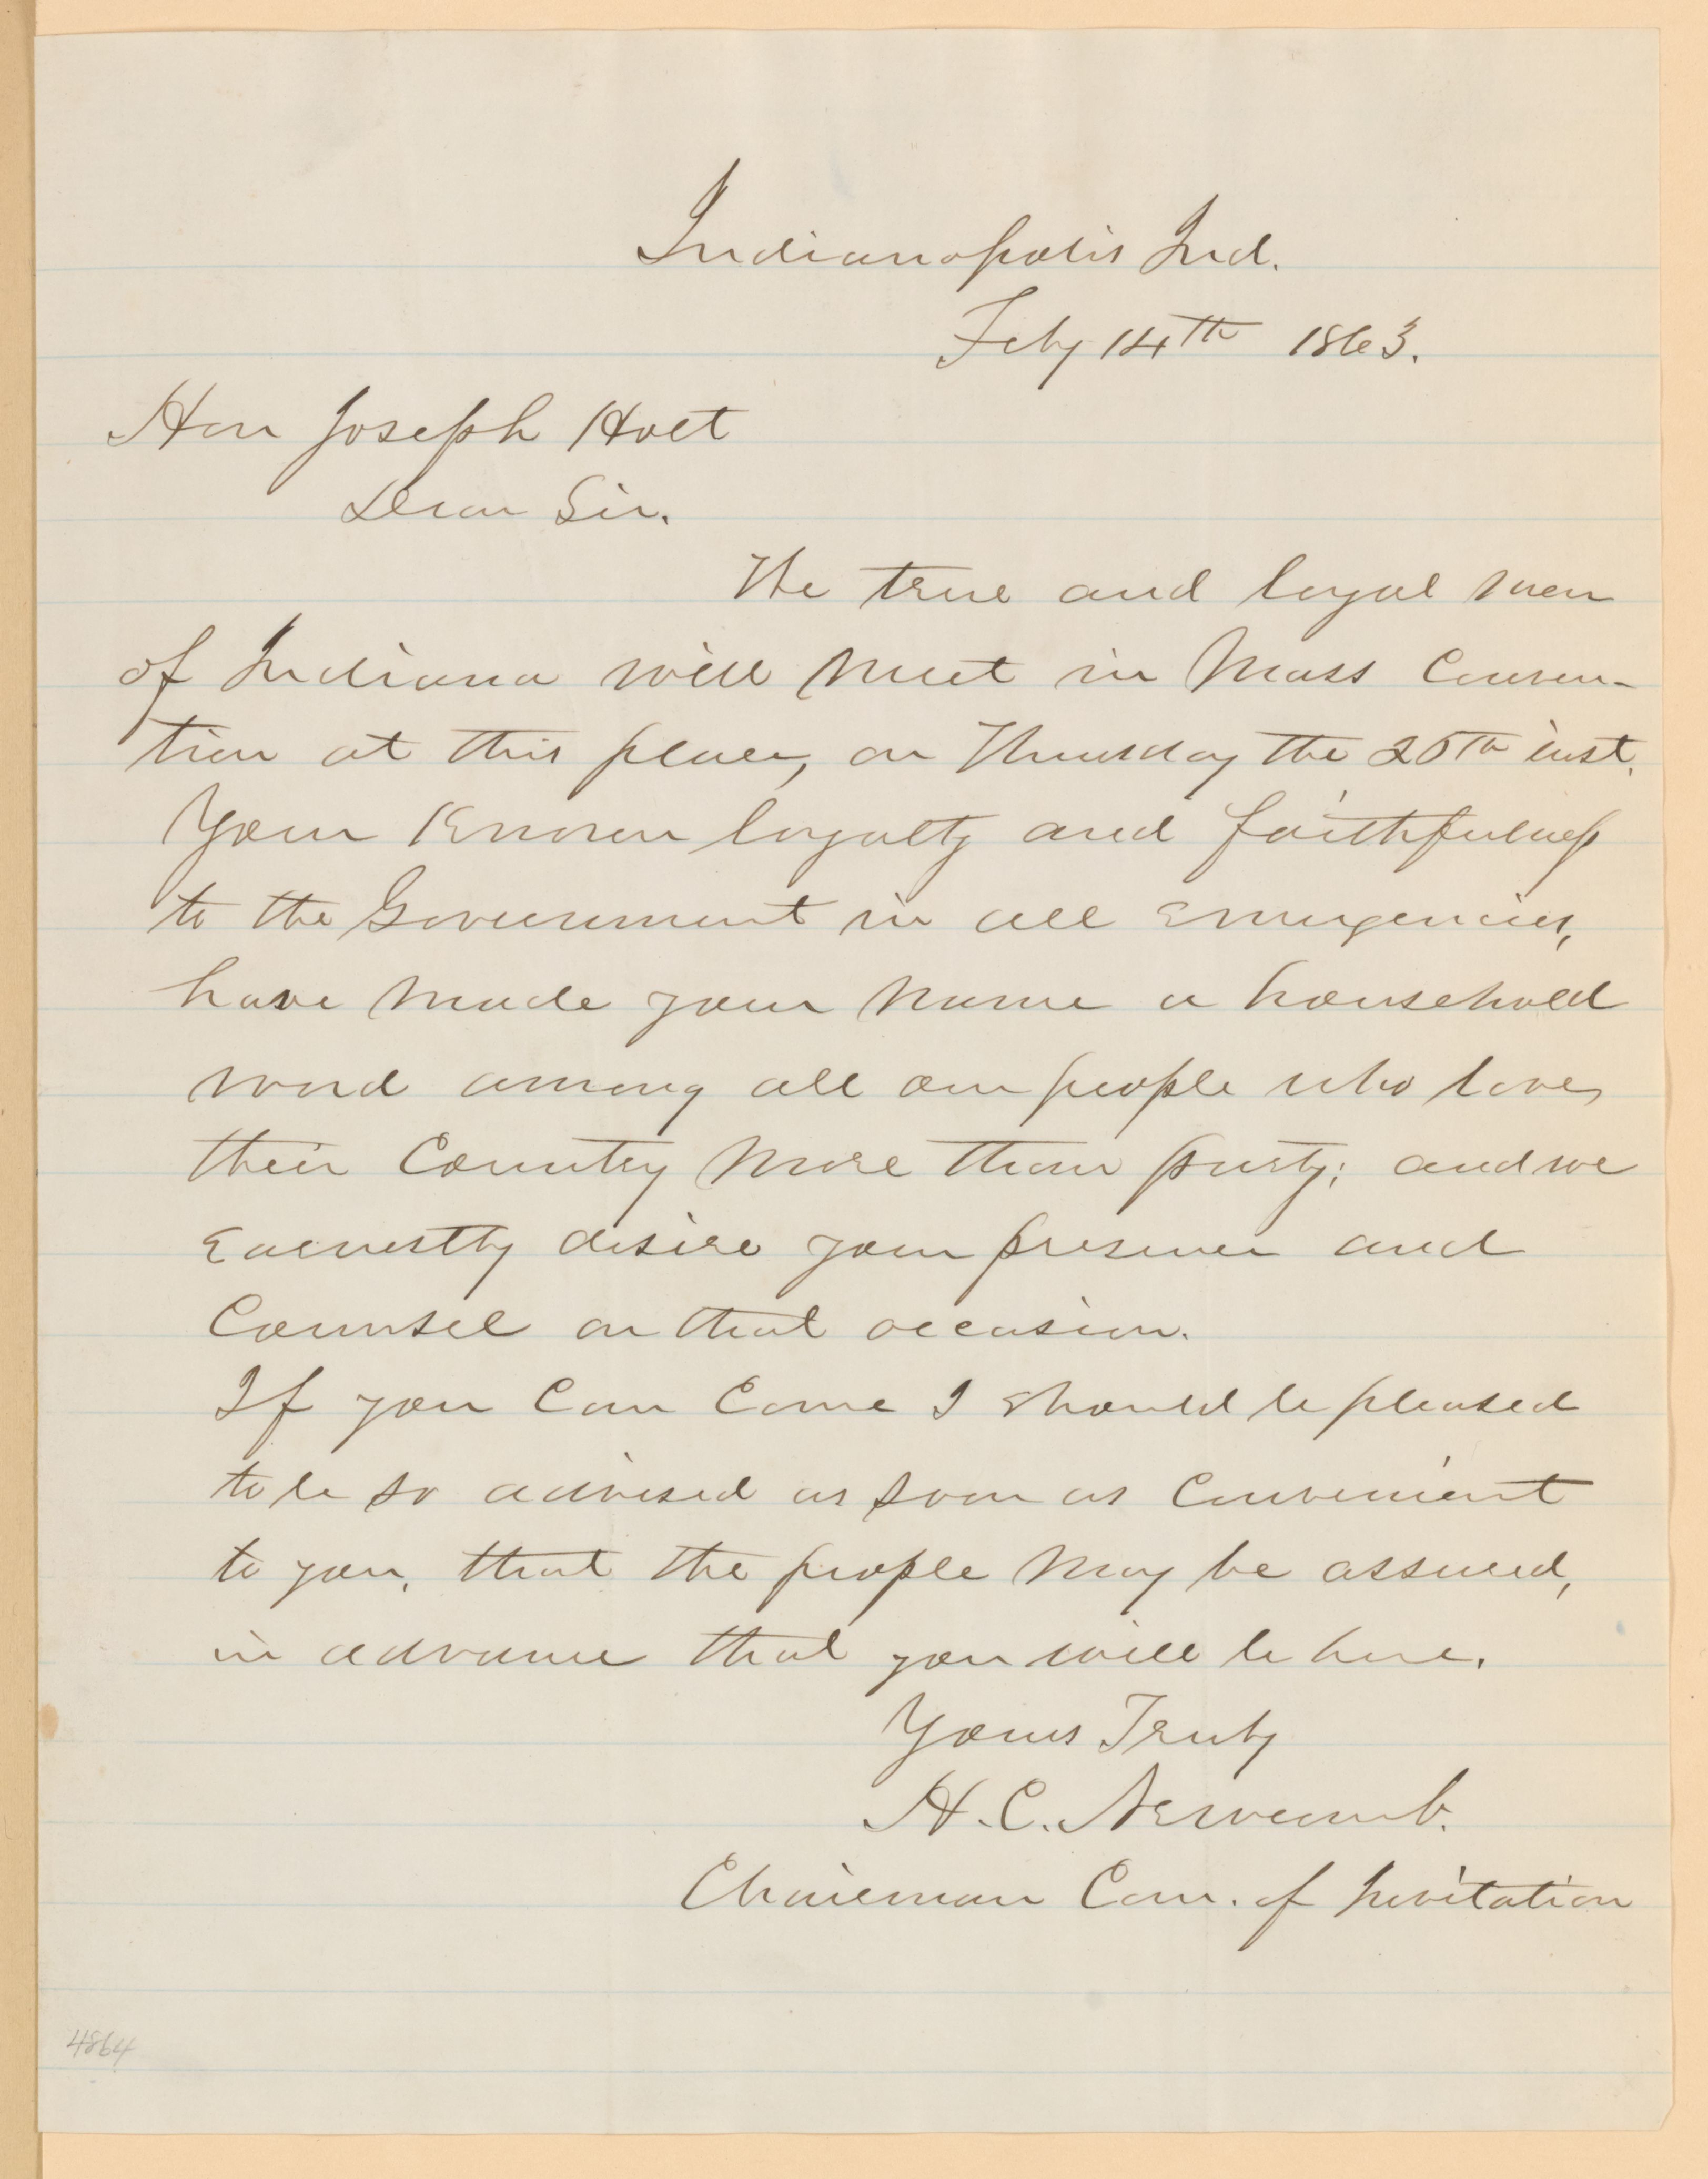 Indianapolis Ind.
Feby 14th 1863.
Hon Joseph Holt
Dear Sir.
The true and loyal men
of Indiana will meet in Mass Conven-
tion at this place, on Thursday the 26th inst.
Your Known loyalty and faithfulness
to the Government in all Emergencies,
have made your name a household
word among all our people who love
their Country more than party; and we
Earnestly desire your presence and
Counsel on that occasion.
If you Can Come I should be pleased
to be so advised as soon as Convenient
to you, that the people may be assured,
in advance that you will be here.
Yours Truly
H. C. Newcomb.
Chairman Com. of Invitation
4864